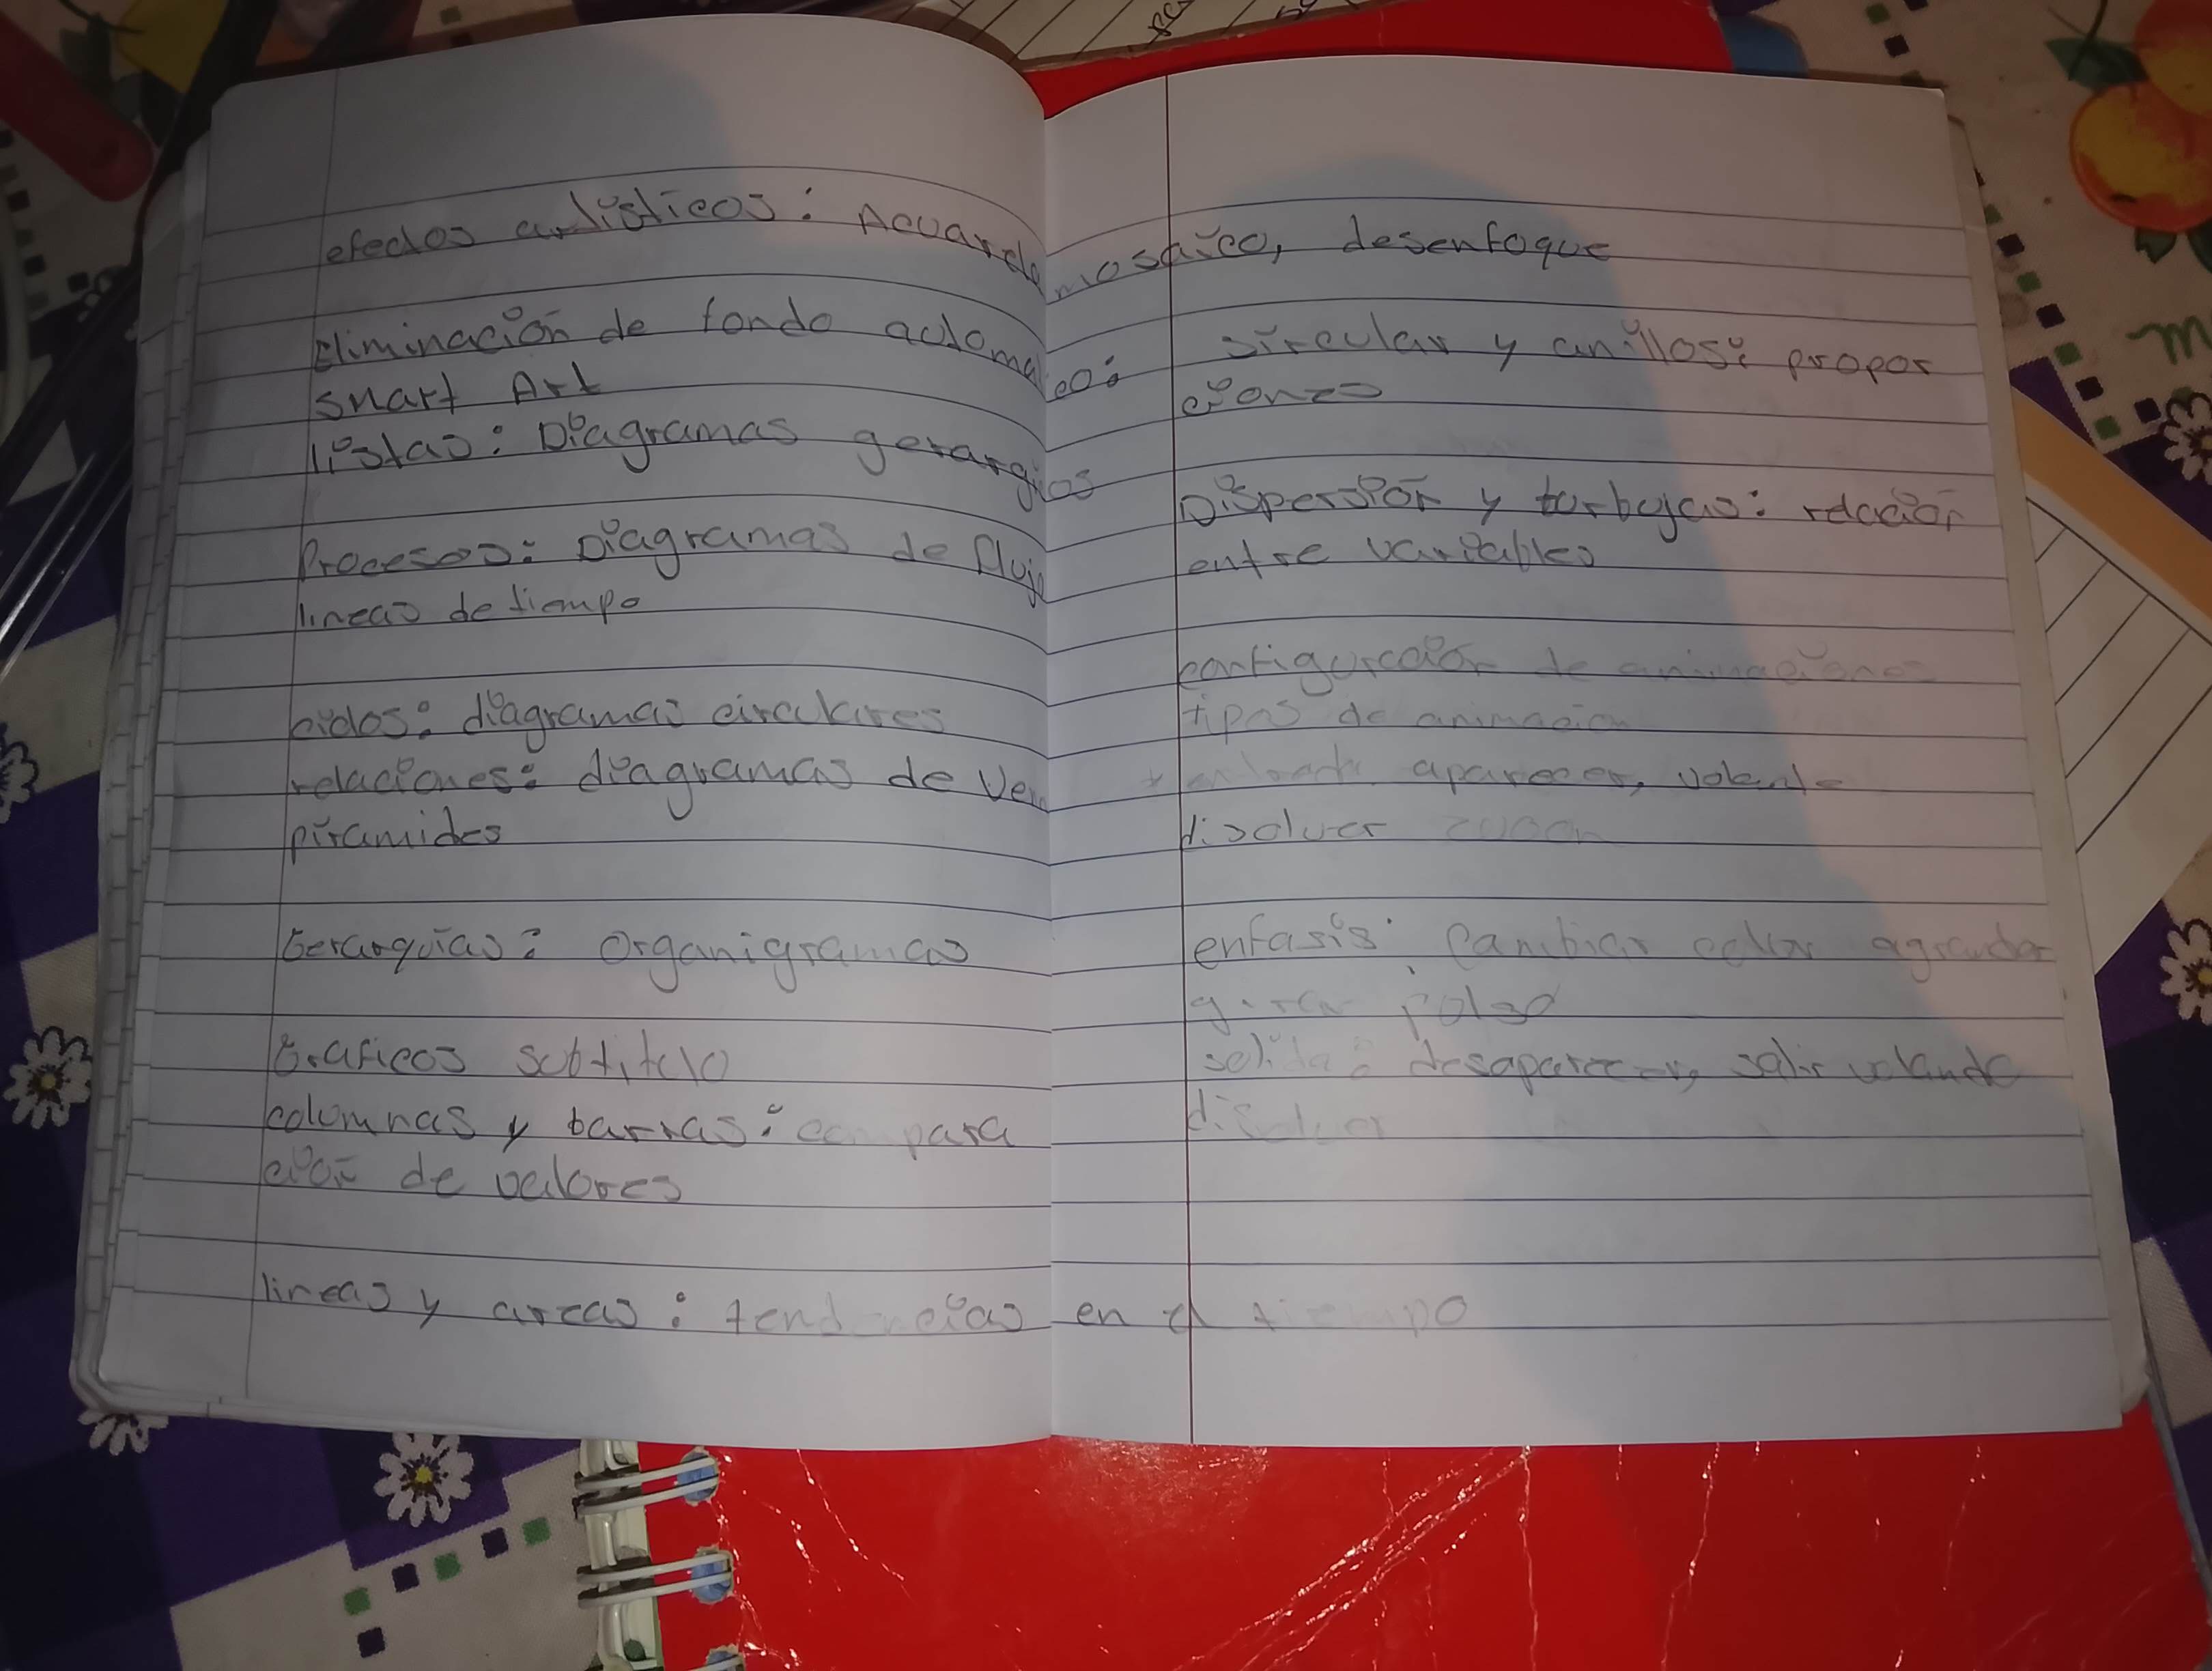 efectos artisticos: Acuarela mosaico, desenfoque
Eliminación de fondo automatico:
smart Art
listas: Diagramas gerargios
Procesos: Diagramas de fluje
lineas de tiempo
ciclos: diagramas circulares
relaciones: diagramas de Ven
piramides
Gerarquias: organigramas
Graficos subtitulo
columnas y barras: compara
ción de valores
lineas y areas: tendencias en el tiempo
sircular y anillos: propor
ciones
Dispersion y burbujas: relación
entre variables
configuración de animaciones
tipos de animacion
aparecer, volando
disolver
enfasis: Cambiar color agrandar
girar pulso
salida: desaparecer, salir volando
disolver